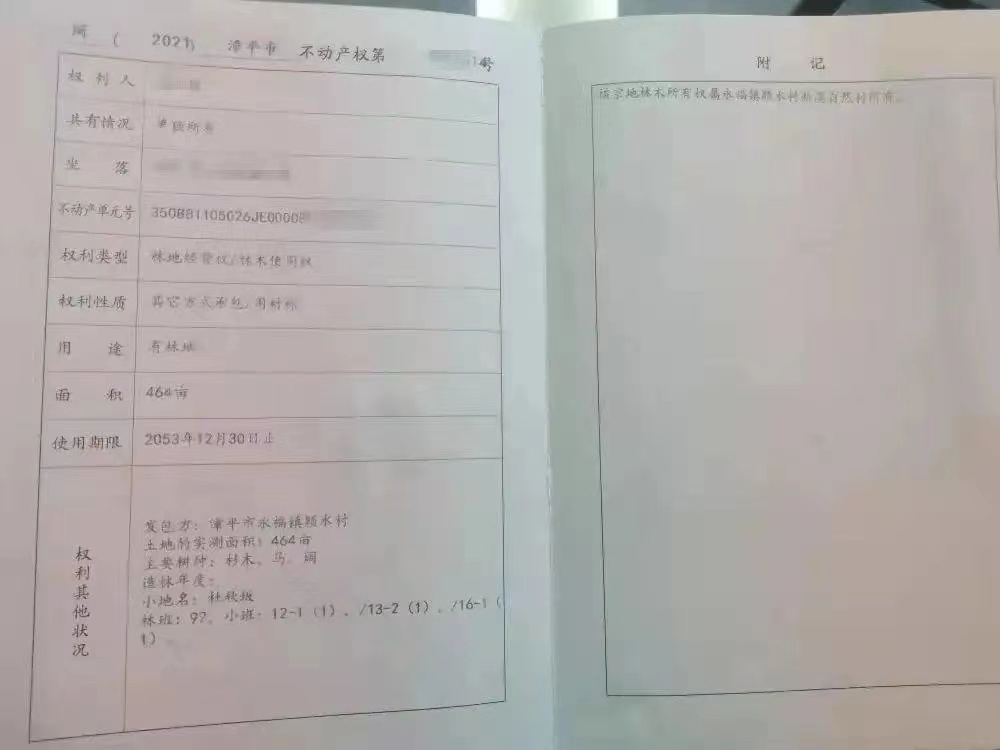 闽 ( 2021) 漳平市 不动产权第 14号
权利人
共有情况 单独所有
坐落
不动产单元号 350881105026JE00008
权利类型 林地经营权/林木使用权
权利性质 其它方式承包,用材林
用途 有林地
面积 464亩
使用期限 2053年12月30日止
权利其他状况
发包方:漳平市永福镇颖水村
土地的实测面积:464亩
主要树种:杉木、马、阔
造林年度:
小地名:
林班:92、小班:12-1(1)、/13-2(1)、/16-1(
1)
附记
该宗地林木所有权属永福镇颖水村 自然村所有。